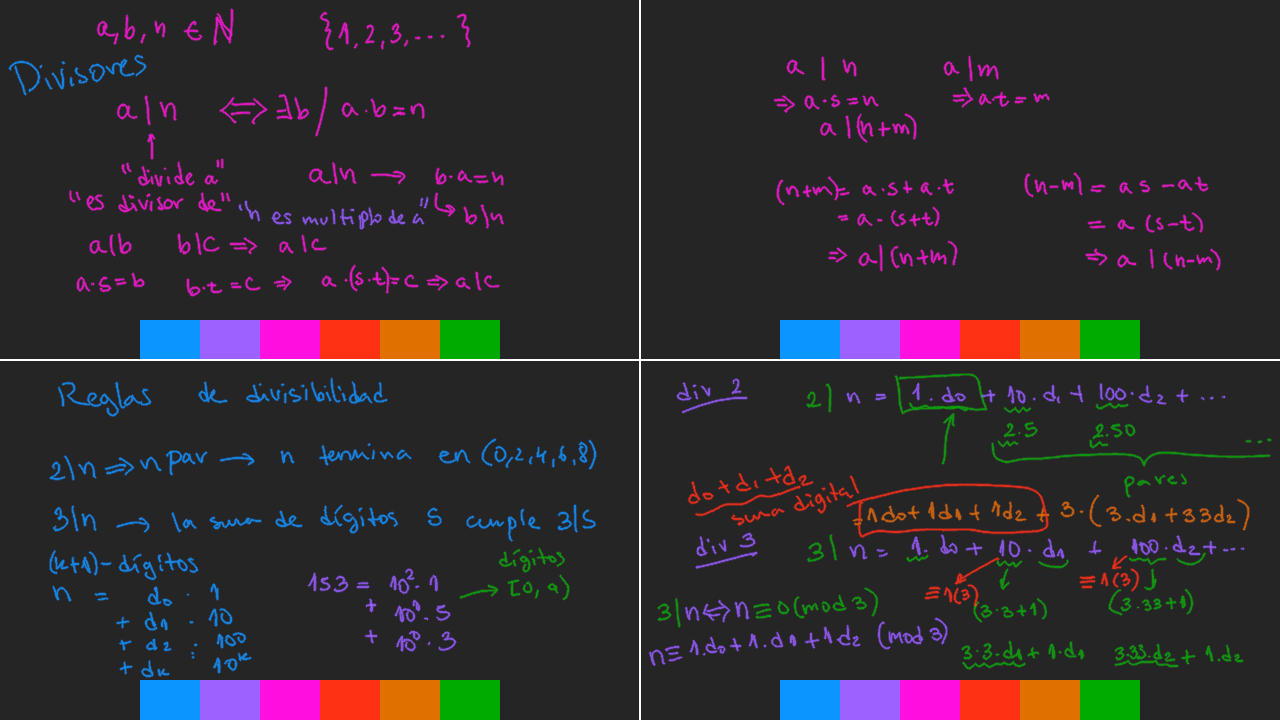 a,b,n ∈ ℕ {1,2,3,...}
Divisores
a|n ⟺ ∃b / a·b=n
↑
"divide a" a|n → b·a=n
"es divisor de" "n es multiplo de a" ↳ b|n
a|b b|c ⇒ a|c
a·s=b b·t=c ⇒ a·(s·t)=c ⇒ a|c
a | n a|m
⇒ a·s=n ⇒ a·t=m
a|(n+m)
(n+m)= a·s+a·t (n-m)= as-at
= a·(s+t) = a(s-t)
⇒ a|(n+m) ⇒ a|(n-m)
Reglas de divisibilidad
2|n ⇒ n par → n termina en (0,2,4,6,8)
3|n → la suma de dígitos S cumple 3|S
(k+1)-dígitos
n = d0 · 1
+ d1 · 10
+ d2 : 100
+ dk 10^k
153 = 10²·1
+ 10¹·5
+ 10⁰·3
dígitos
→ [0,9)
div 2 2| n = 1·d0 + 10·d1 + 100·d2 + ...
2·5 2·50 ...
pares
d0+d1+d2
suma digital
=1d0+1d1+1d2 + 3·(3·d1+33d2)
div 3 3| n = 1·d0 + 10·d1 + 100·d2 + ...
≡1(3) ≡1(3)
(3·3+1) (3·33+1)
3|n ⟷ n ≡ 0 (mod 3)
n≡1·d0+1·d1+1d2 (mod 3)
3·3·d1 + 1·d1 3·33·d2 + 1·d2